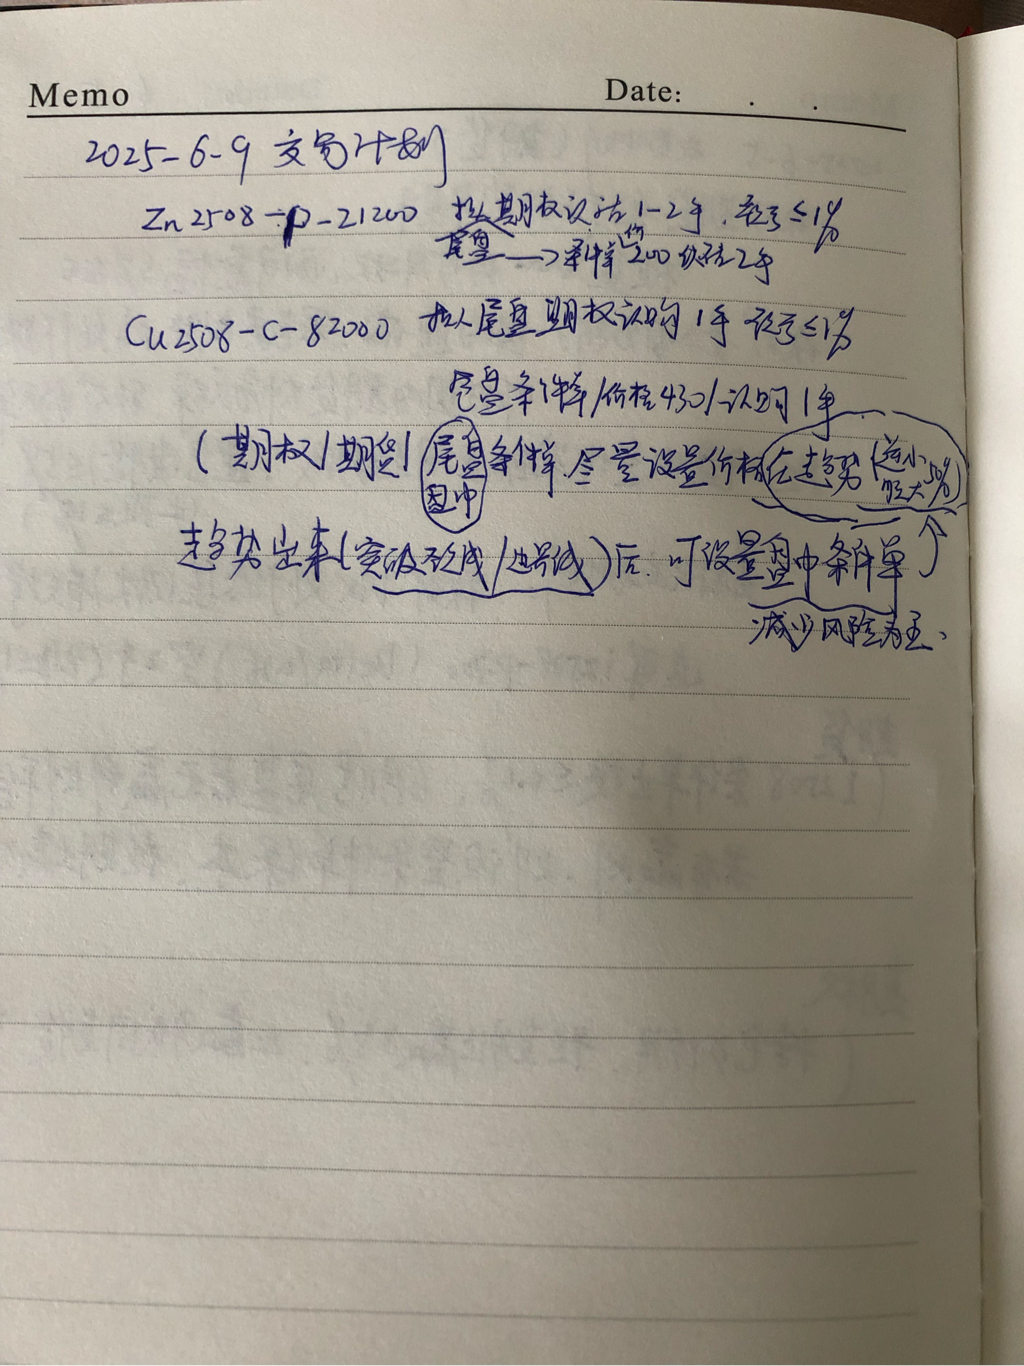 Memo Date: . .
2025-6-9 交易计划
Zn2508-P-21200 拟入期权认沽1-2手. 亏≤1%
尾盘→条件单价200 2手
Cu2508-C-82000 拟入尾盘期权认购1手 亏≤1%
尾盘条件单/价格430/认购1手
(期权/期货/尾盘条件单.尽量设置价格在趋势(缩小 放大50%
盘中
趋势出来(突破 线/ 线)后.可设置盘中条件单
减少风险为主.